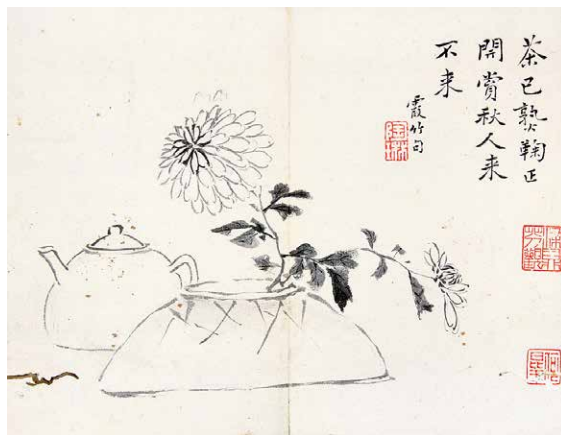 茶已熟鞠正
開賞秋人来
不来
霞竹句